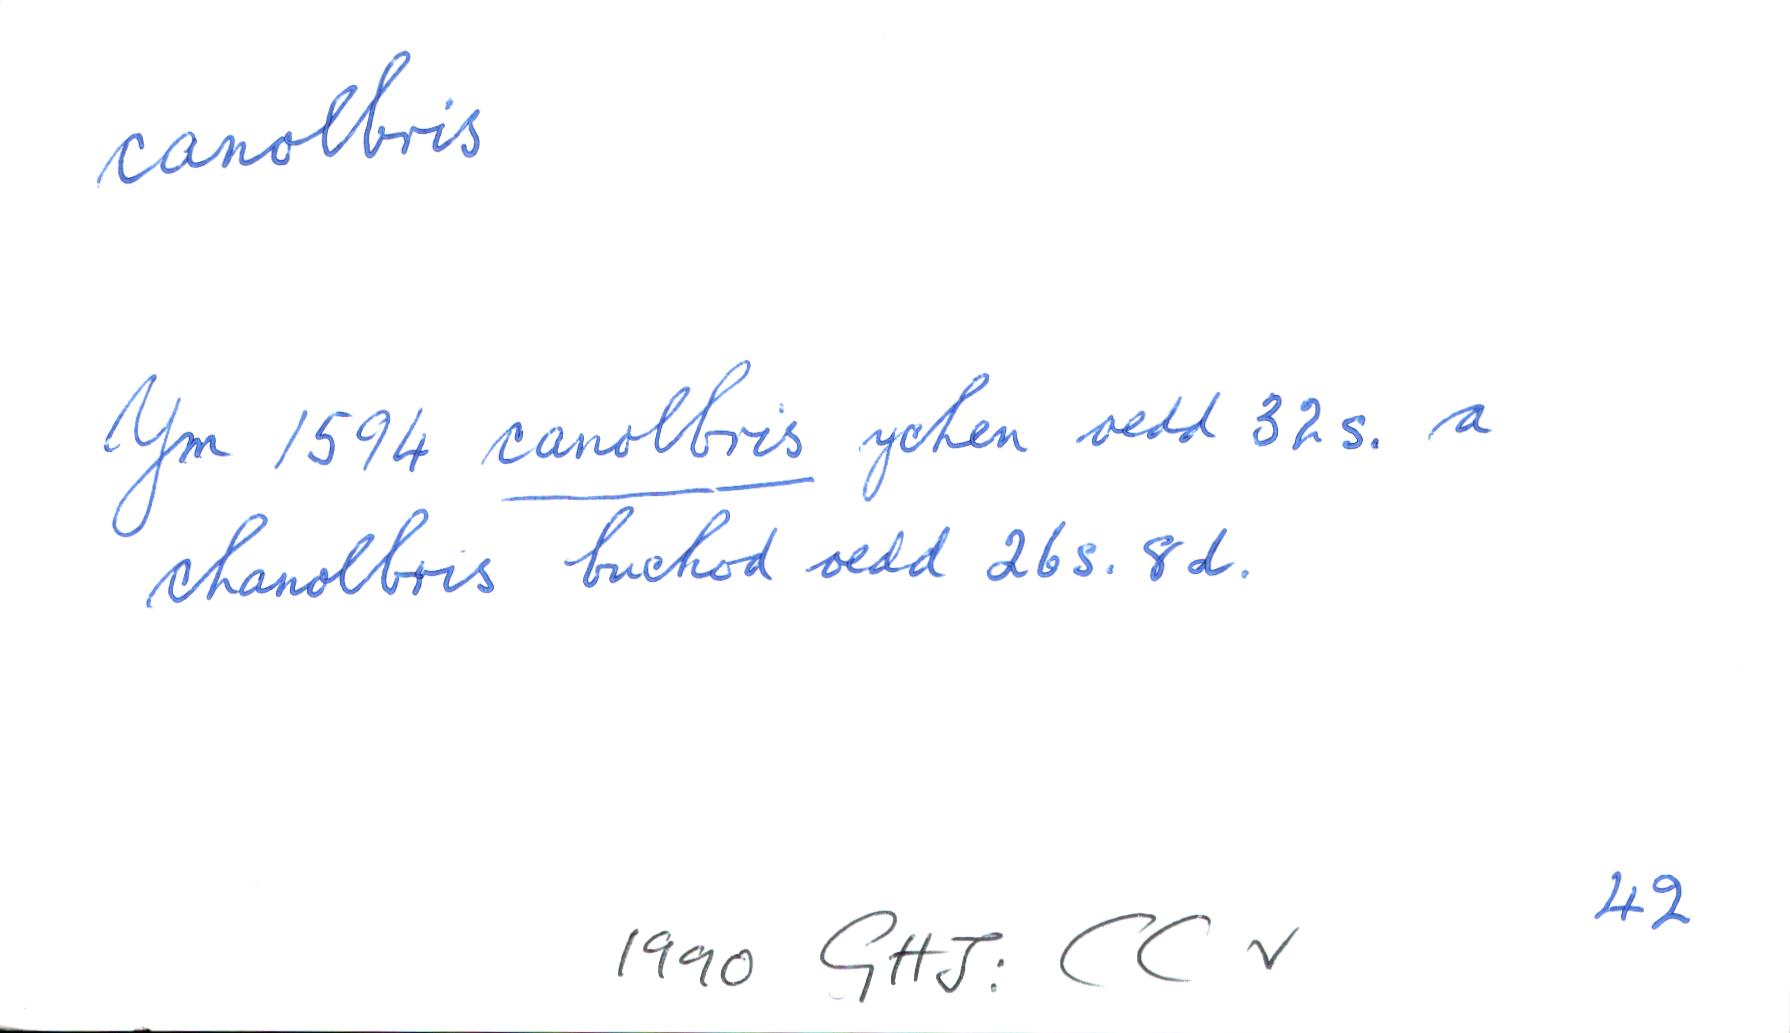 canolbris
Ym 1594 canolbris ychen oedd 32s. a
chanolbris buchod oedd 26s. 8d.
42
1990 GHJ: CC ✓